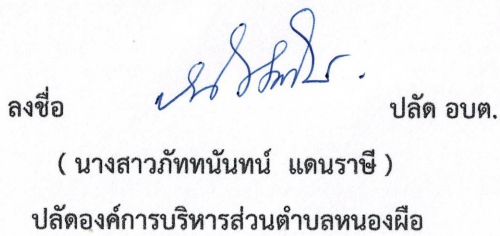 ลงชื่อ ปลัด อบต.
( นางสาวภัททนันทน์ แดนราษี )
ปลัดองค์การบริหารส่วนตำบลหนองผือ